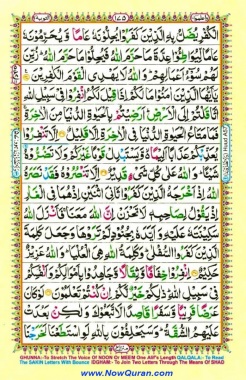 الْكُفْرِ يُضَلُّ بِهِ الَّذِيْنَ كَفَرُوْا يُحِلُّوْنَهٗ عَامًا وَّيُحَرِّمُوْنَهٗ
عَامًا لِّيُوَاطِـُٔوْا عِدَّةَ مَا حَرَّمَ اللّٰهُ فَيُحِلُّوْا مَا حَرَّمَ اللّٰهُ زُيِّنَ
لَهُمْ سُوْٓءُ اَعْمَالِهِمْ وَاللّٰهُ لَا يَهْدِى الْقَوْمَ الْكٰفِرِيْنَ
يٰٓاَيُّهَا الَّذِيْنَ اٰمَنُوْا مَا لَكُمْ اِذَا قِيْلَ لَكُمُ انْفِرُوْا فِىْ سَبِيْلِ اللّٰهِ
اثَّاقَلْتُمْ اِلَى الْاَرْضِ اَرَضِيْتُمْ بِالْحَيٰوةِ الدُّنْيَا مِنَ الْاٰخِرَةِ
فَمَا مَتَاعُ الْحَيٰوةِ الدُّنْيَا فِى الْاٰخِرَةِ اِلَّا قَلِيْلٌ اِلَّا تَنْفِرُوْا
يُعَذِّبْكُمْ عَذَابًا اَلِيْمًا وَّيَسْتَبْدِلْ قَوْمًا غَيْرَكُمْ وَلَا تَضُرُّوْهُ
شَيْـًٔا وَاللّٰهُ عَلٰى كُلِّ شَىْءٍ قَدِيْرٌ اِلَّا تَنْصُرُوْهُ فَقَدْ نَصَرَهُ اللّٰهُ
اِذْ اَخْرَجَهُ الَّذِيْنَ كَفَرُوْا ثَانِىَ اثْنَيْنِ اِذْ هُمَا فِى الْغَارِ
اِذْ يَقُوْلُ لِصَاحِبِهٖ لَا تَحْزَنْ اِنَّ اللّٰهَ مَعَنَا فَاَنْزَلَ اللّٰهُ
سَكِيْنَتَهٗ عَلَيْهِ وَاَيَّدَهٗ بِجُنُوْدٍ لَّمْ تَرَوْهَا وَجَعَلَ كَلِمَةَ
الَّذِيْنَ كَفَرُوا السُّفْلٰى وَكَلِمَةُ اللّٰهِ هِىَ الْعُلْيَا وَاللّٰهُ عَزِيْزٌ
حَكِيْمٌ اِنْفِرُوْا خِفَافًا وَّثِقَالًا وَّجَاهِدُوْا بِاَمْوَالِكُمْ وَاَنْفُسِكُمْ
فِىْ سَبِيْلِ اللّٰهِ ذٰلِكُمْ خَيْرٌ لَّكُمْ اِنْ كُنْتُمْ تَعْلَمُوْنَ لَوْ كَانَ
عَرَضًا قَرِيْبًا وَّسَفَرًا قَاصِدًا لَّاتَّبَعُوْكَ وَلٰكِنْۢ بَعُدَتْ
عَلَيْهِمُ الشُّقَّةُ وَسَيَحْلِفُوْنَ بِاللّٰهِ لَوِ اسْتَطَعْنَا لَخَرَجْنَا
GHUNNA:-To Stretch The Voice Of NOON Or MEEM One Alif's Length QALQALA:- To Read
The SAKIN Letters With Bounce IDGHAM:- To Join Two Letters Through The Means Of SHAD
www.NowQuran.com